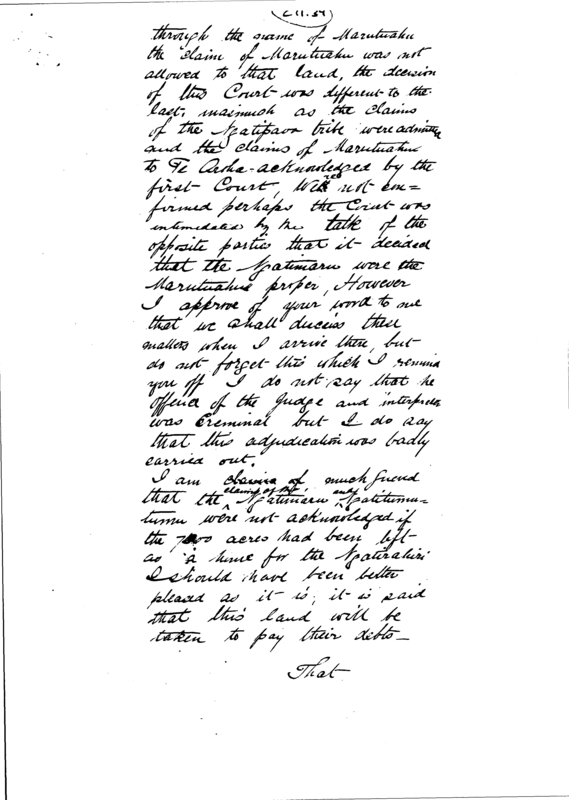 (C11.59)
through the name of Marutuahu
the claim of Marutuahu was not
allowed to that land, the decision
of this Court was different to the
last, inasmuch as the claims
of the Ngatipaoa tribe were admitted
and the claims of Marutuahu
to Te Aroha acknowledged by the
first Court, were not con=
firmed perhaps the Court was
intimidated by the talk of the
opposite parties that it decided
that the Ngatimaru were the
Marutuahu proper, However
I approve of your word to me
that we shall discuss these
matters when I arrive there, but
do not forget this which I remind
you off I do not say that the
offence of the Judge and interpreter
was Creminal but I do say
that this adjudication was badly
carried out.
I am much grieved
that the claims of the Ngatimaru and Ngatitama=
tumu were not acknowledged if
the 7000 acres had been left
as a home for the Ngatirahiri
I should have been better
pleased as it is; it is said
that this land will be
taken to pay their debts —
That